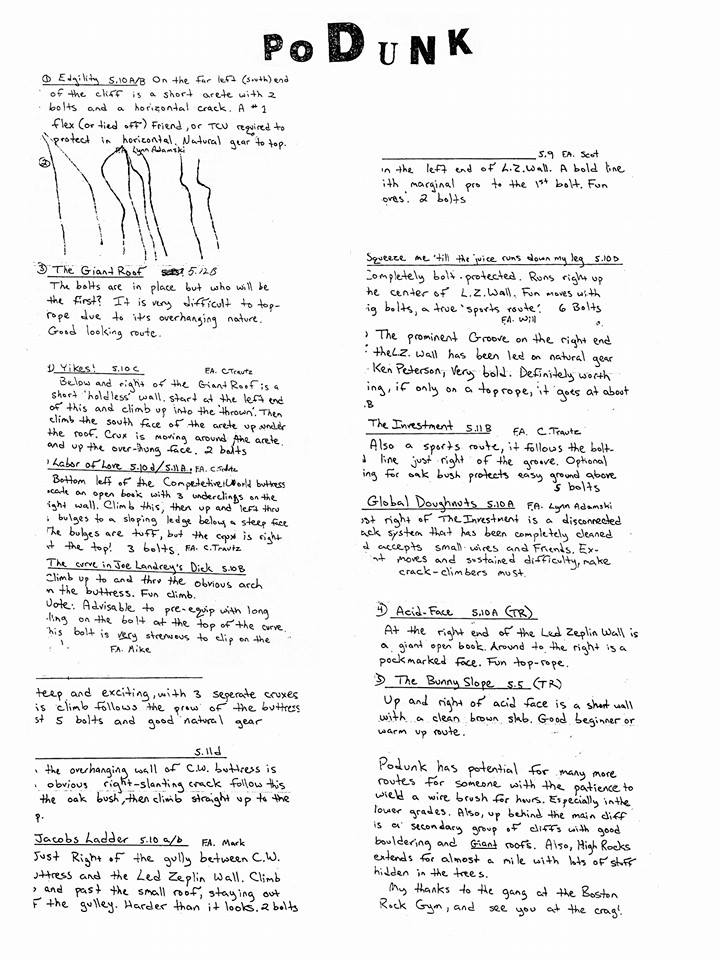 PODUNK
① Edgility 5.10A/B On the far left (south) end
of the cliff is a short arete with 2
bolts and a horizontal crack. A #1
flex (or tied off) Friend, or TCU required to
protect in horizontal. Natural gear to top.
FA Lynn Adamski
②
③ The Giant Roof 5.12B
The bolts are in place but who will be
the first? It is very difficult to top-
rope due to it's overhanging nature.
Good looking route.
1) Yikes! 5.10C FA. C.Trautz
Below and right of the Giant Roof is a
short "holdless" wall. start at the left end
of this and climb up into the 'thrown'. Then
climb the south face of the arete up under
the roof. Crux is moving around the arete.
and up the over-hung face. 2 bolts
) Labor of Love 5.10d/5.11A. FA. C.Trautz
Bottom left of the Competetive World buttress
ocate an open book with 3 underclings on the
ight wall. Climb this, then up and left thru
bulges to a sloping ledge below a steep face
The bulges are tuff, but the crux is right
t the top! 3 bolts. FA. C.Trautz
The curve in Joe Landrey's Dick 5.10B
Climb up to and thru the obvious arch
n the buttress. Fun climb.
Note: Advisable to pre-equip with long
ling on the bolt at the top of the curve.
his bolt is very strenuous to clip on the
FA. Mike
teep and exciting, with 3 seperate cruxes
is climb follows the prow of the buttress
st 5 bolts and good natural gear
5.11d
the overhanging wall of C.W. buttress is
obvious right-slanting crack follow this
the oak bush, then climb straight up to the
p.
Jacobs Ladder 5.10 a/b FA. Mark
Just Right of the gully between C.W.
uttress and the Led Zeplin Wall. Climb
and past the small roof, staying out
f the gulley. Harder than it looks. 2 bolts
5.9 FA. Scot
in the left end of L.Z. Wall. A bold line
ith marginal pro to the 1st bolt. Fun
oves. 2 bolts
Squeeze me 'till the juice runs down my leg 5.10D
Completely bolt-protected. Runs right up
he center of L.Z. Wall. Fun moves with
ig bolts, a true 'sports route'. 6 Bolts
FA. Will
) The prominent Groove on the right end
the L.Z. Wall has been led on natural gear
Ken Peterson, Very bold. Definitely worth
ing, if only on a top rope, it goes at about
.B
The Investment 5.11B FA. C.Trautz
Also a sports route, it follows the bolt-
d line just right of the groove. Optional
ing for oak bush protects easy ground above
5 bolts
Global Doughnuts 5.10A FA. Lynn Adamski
ost right of The Investment is a disconnected
ack system that has been completely cleaned
d accepts small wires and Friends. Ex-
nt moves and sustained difficulty, make
crack-climbers must.
4) Acid-Face 5.10A (TR)
At the right end of the Led Zeplin Wall is
a giant open book. Around to the right is a
pockmarked face. Fun top-rope.
5) The Bunny Slope 5.5 (TR)
Up and right of acid face is a short wall
with a clean brown slab. Good beginner or
warm up route.
Podunk has potential for many more
routes for someone with the patience to
wield a wire brush for hours. Especially in the
lower grades. Also, up behind the main cliff
is a secondary group of cliffs with good
bouldering and Giant roofs. Also, High Rocks
extends for almost a mile with lots of stuff
hidden in the trees.
My thanks to the gang at the Boston
Rock Gym, and see you at the crag!